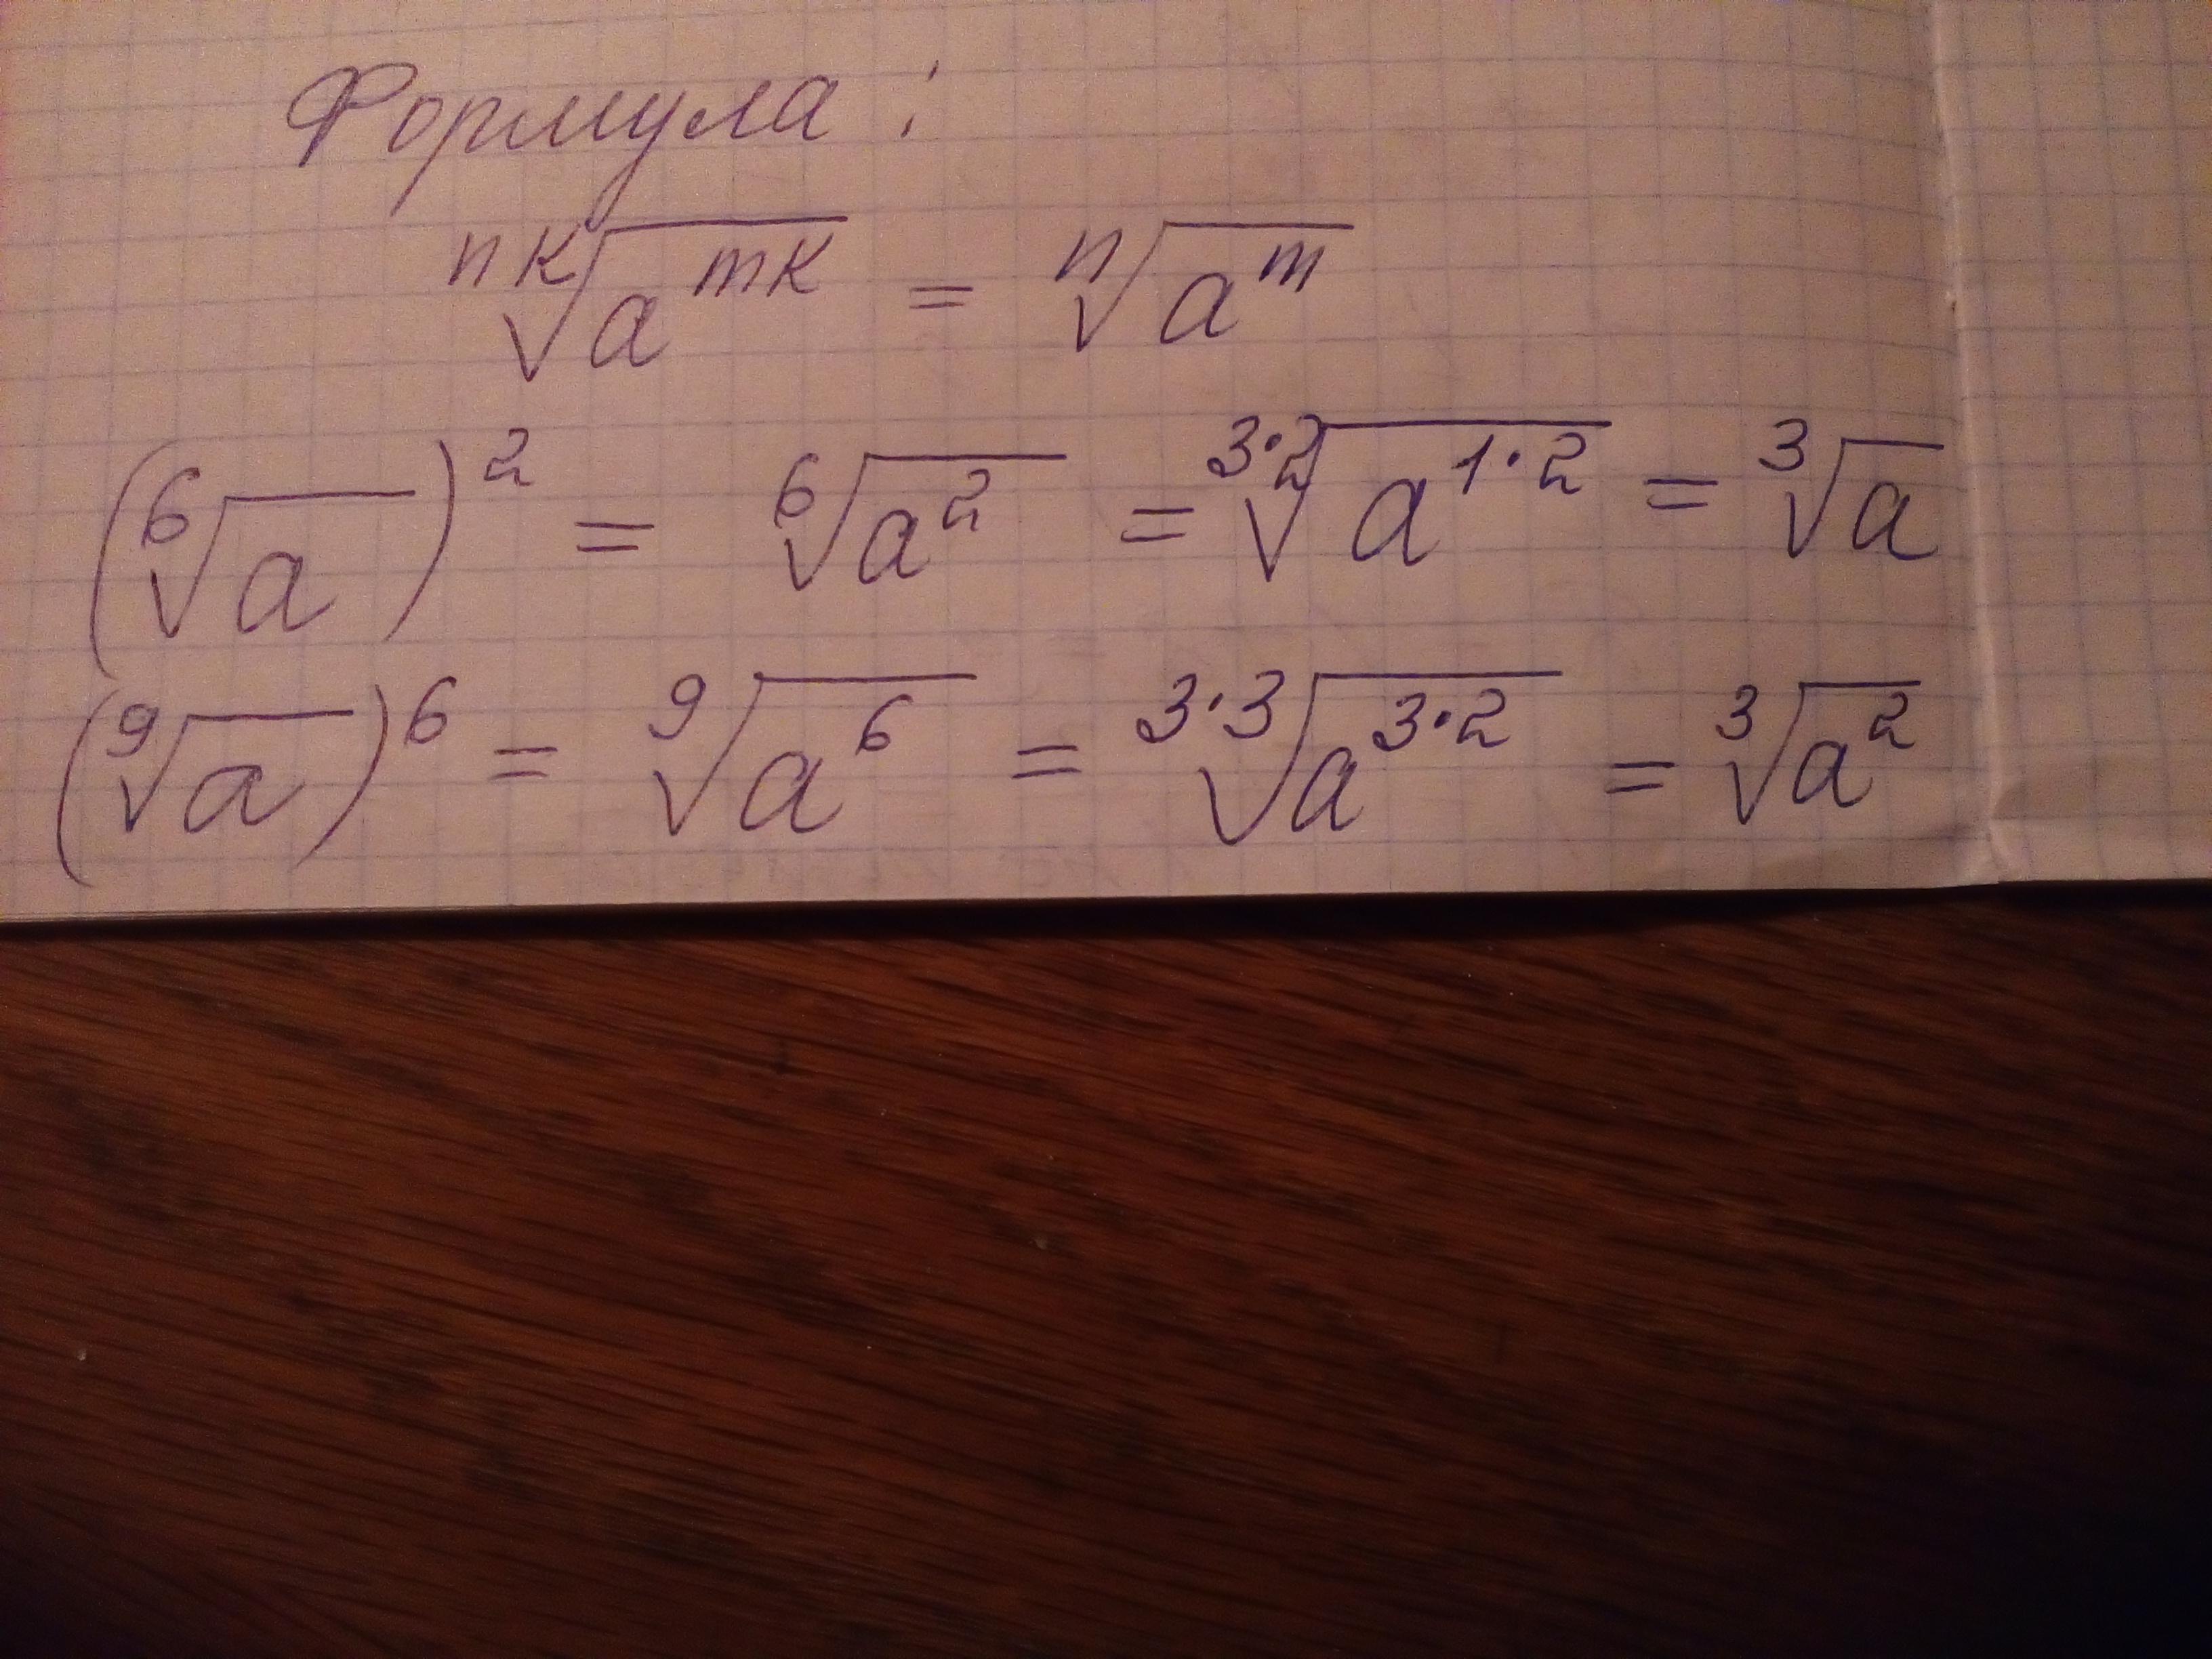 Формула:
$\sqrt[nk]{a^{mk}} = \sqrt[n]{a^m}$
$(\sqrt[6]{a})^2 = \sqrt[6]{a^2} = \sqrt[3 \cdot 2]{a^{1 \cdot 2}} = \sqrt[3]{a}$
$(\sqrt[9]{a})^6 = \sqrt[9]{a^6} = \sqrt[3 \cdot 3]{a^{3 \cdot 2}} = \sqrt[3]{a^2}$